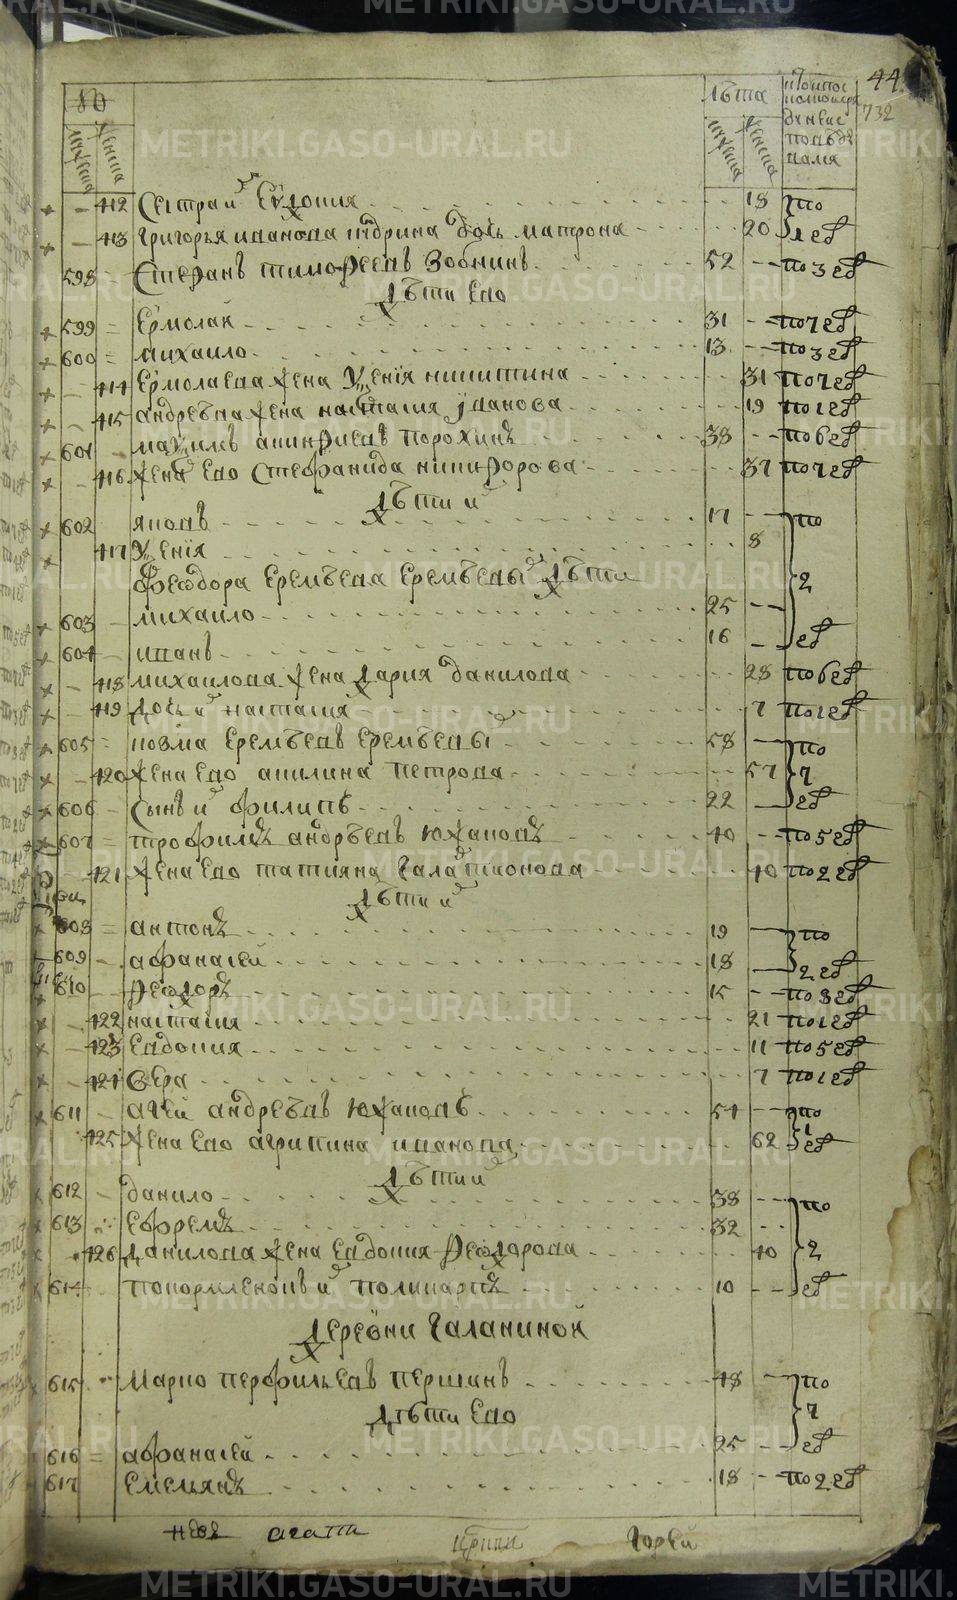 44
732
№ лѣта
мужеска женска мужеска женска
412 Сестра и Евдокия 18 по
413 Григорья Иванова дочь Матрона 20 1 ев
598 Стефанъ Тимофеевъ Зобнинъ 52 по 3 ев
Дѣти Ево
599 Ермолай 31 по 7 ев
600 Михаило 13 по 3 ев
414 Ермолаева жена Ксения Никитина 31 по 7 ев
415 Андреѣва жена Настасия Иванова 19 по 1 ев
601 Максимъ Панфилевъ Порохинъ 38 по 6 ев
416 Жена Ево Стефанида Никифорова 37 по 7 ев
Дѣти их
602 Яковъ 17 по
417 Ксения 8
Феодора Еремѣева Еремѣевы дѣти 2
603 Михаило 25
604 Иванъ 16 ев
418 Михаилова жена Дария Данилова 28 по 6 ев
419 Дочь их Настасия 7 по 1 ев
605 Козма Еремѣевъ Еремѣевы 58 по
420 Жена Ево Акилина Петрова 57 7
606 Сынъ их Филипъ 22 ев
607 Трофимъ Андрѣевъ Южаковъ 40 по 5 ев
421 Жена Ево Татияна Галактионова 40 по 2 ев
Дѣти их
608 Антонъ 19 по
609 Афанасей 18 2 ев
610 Феодоръ 15 по 3 ев
422 Настасия 21 по 1 ев
423 Евдокия 11 по 5 ев
424 Вера 7 по 1 ев
611 Агѣй Андреѣвъ Южаковъ 54 по
425 Жена Ево Агрипина Иванова 62 1 ев
Дѣти их
612 Данило 38 по
613 Ефремъ 32
426 Данилова жена Евдокия Феодорова 40 2
614 Покормленокъ их Поликарпъ 10 ев
Деревни Галаниной
615 Марко Перфильевъ Першинъ 48 по
Дѣти Ево 7
616 Афанасей 25 ев
617 Емельянъ 18 по 2 ев
METRIKI.GASO-URAL.RU